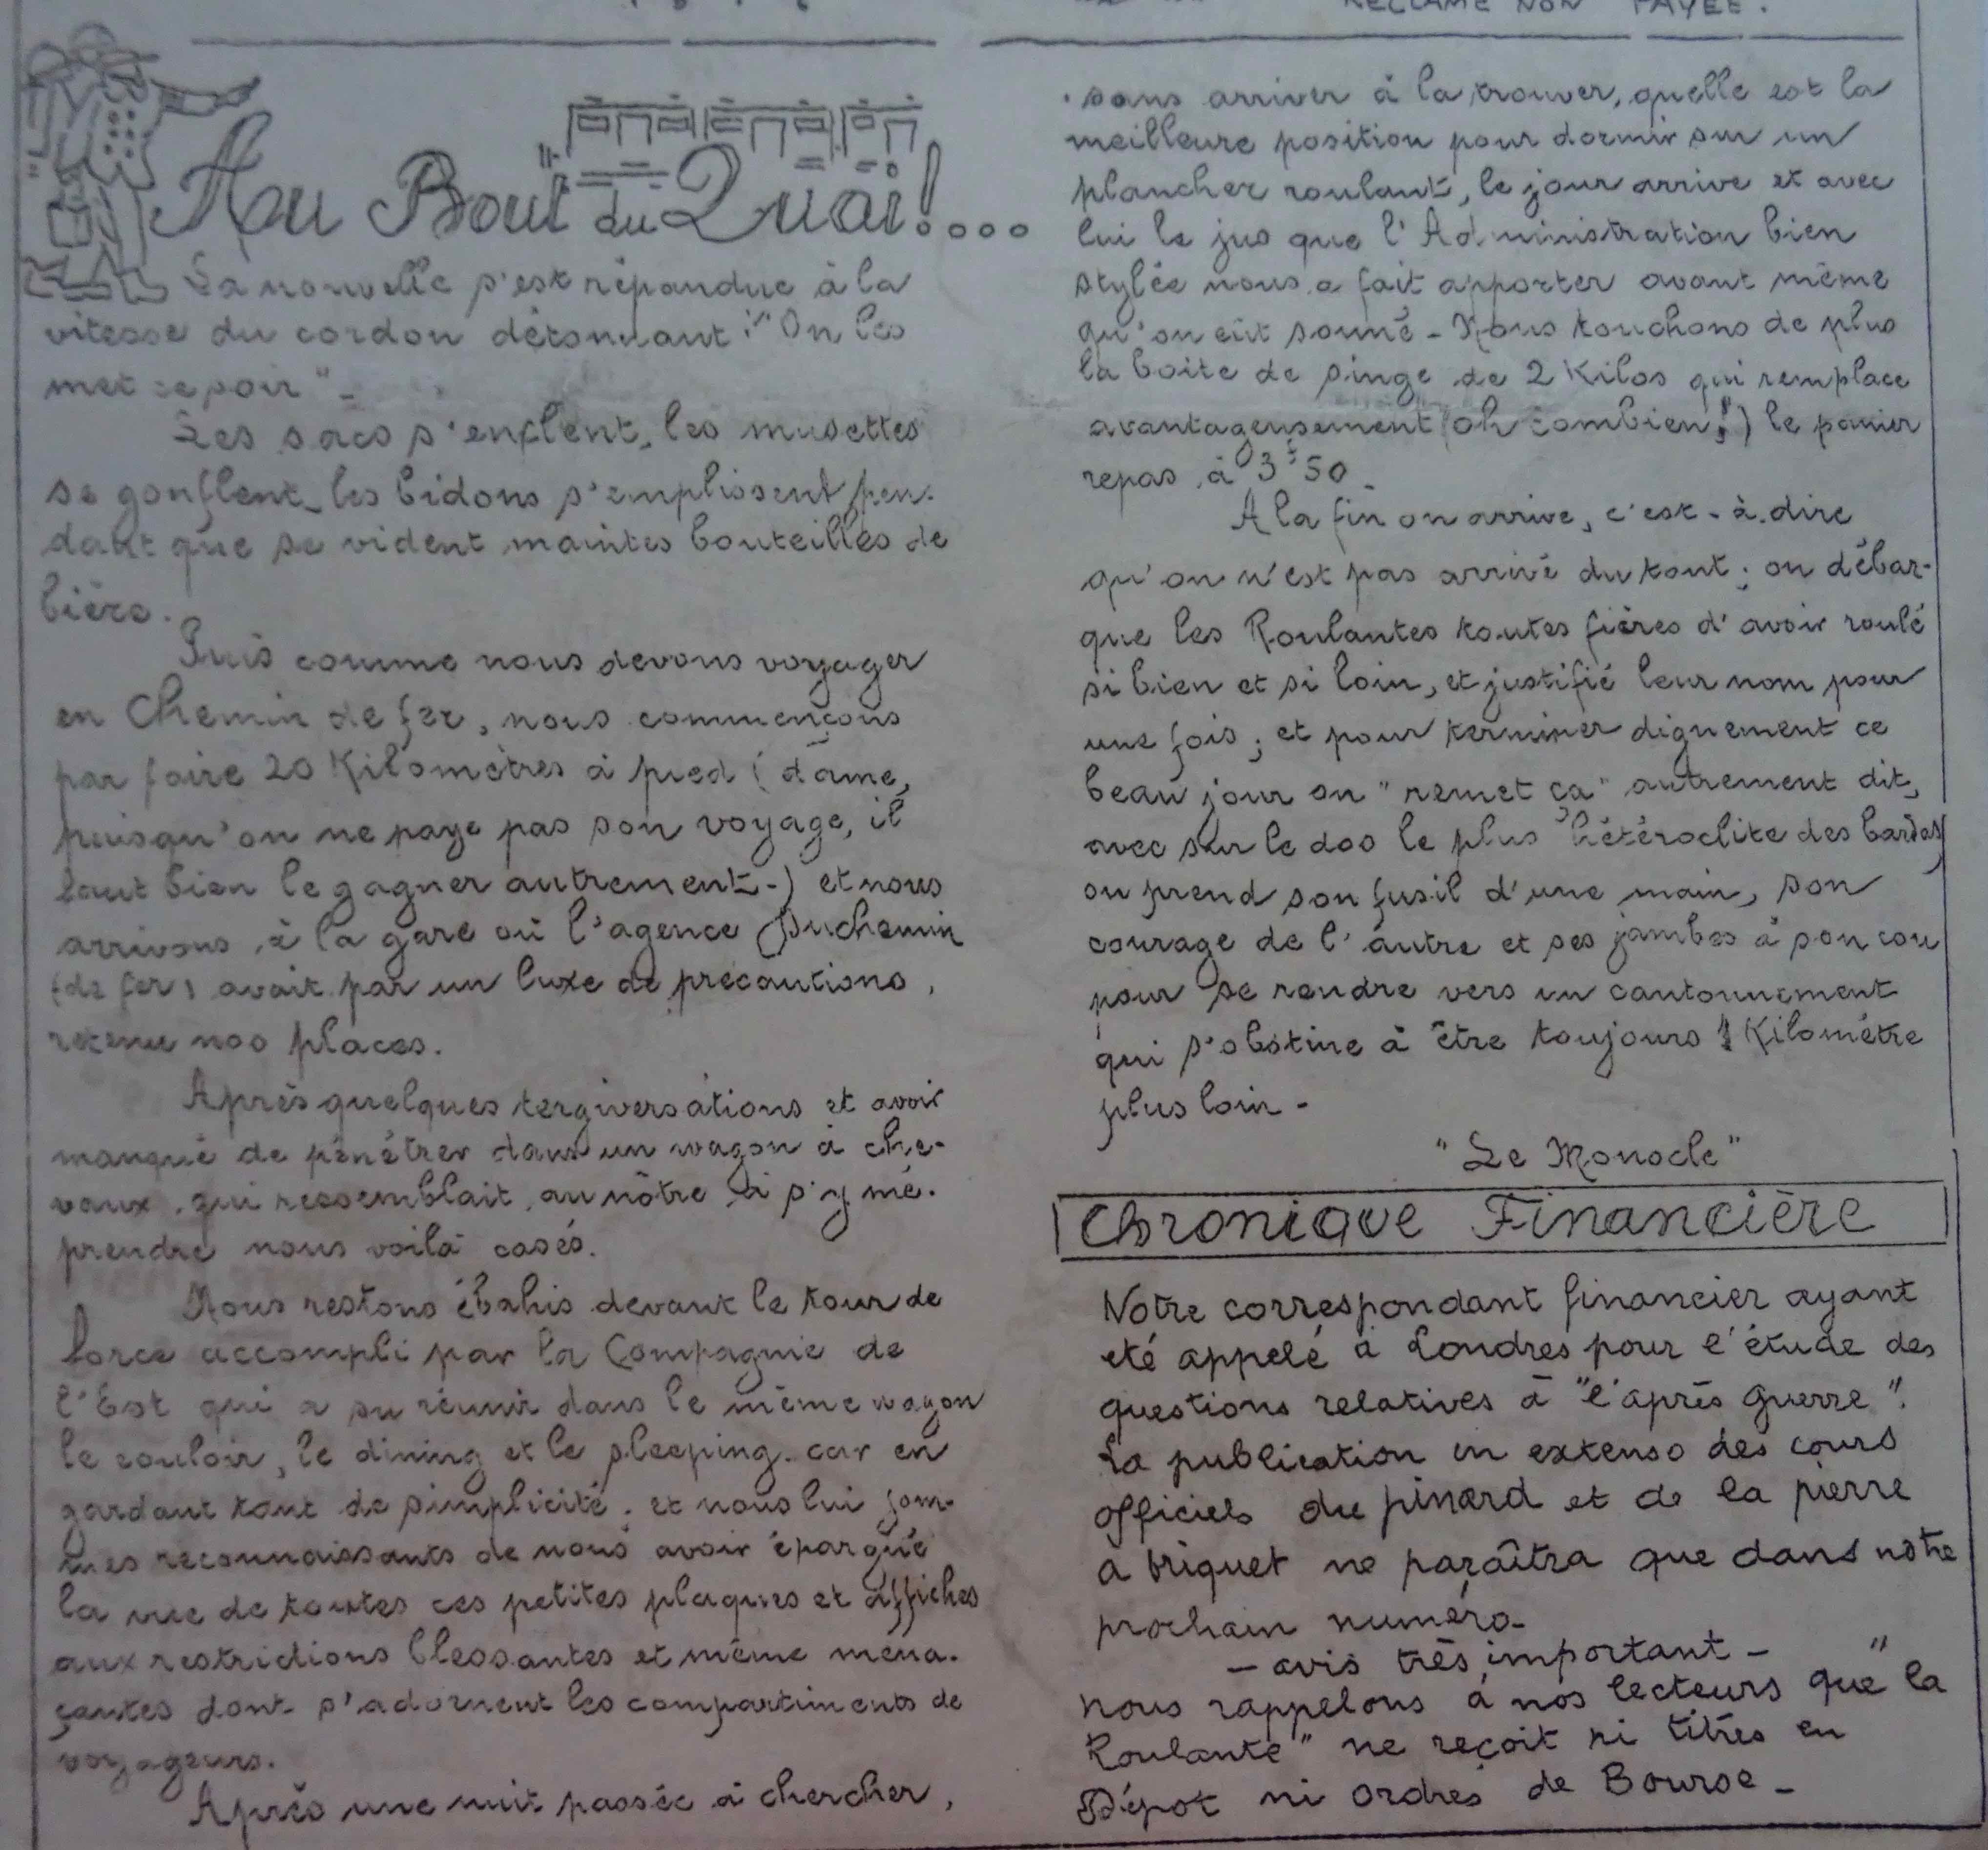 RÉCLAME NON PAYÉE.
Au Bout du Quai!....
La nouvelle s'est répandue à la
vitesse du cordon détonnant: "On les
met ce soir" -
Les sacs s'enflent, les musettes
se gonflent, les bidons s'emplissent pen-
dant que se vident maintes bouteilles de
bière.
Puis comme nous devons voyager
en Chemin de fer, nous commençons
par faire 20 Kilomètres à pied (dame,
puisqu'on ne paye pas son voyage, il
faut bien le gagner autrement -) et nous
arrivons à la gare où l'agence Duchemin
(de fer) avait par un luxe de précautions,
retenu nos places.
Après quelques tergiversations et avoir
manqué de pénétrer dans un wagon à che-
vaux, qui ressemblait au nôtre à s'y mé-
prendre nous voilà casés.
Nous restons ébahis devant le tour de
force accompli par la Compagnie de
l'Est qui a su réunir dans le même wagon
le couloir, le dining et le sleeping. car en
gardant tant de simplicité; et nous lui som-
mes reconnaissants de nous avoir épargné
la vue de toutes ces petites plaques et affiches
aux restrictions blessantes et même mena-
çantes dont s'adornent les compartiments de
voyageurs.
Après une nuit passée à chercher,
sans arriver à la trouver, quelle est la
meilleure position pour dormir sur un
plancher roulant, le jour arrive et avec
lui le jus que l'Administration bien
stylée nous a fait apporter avant même
qu'on eût sonné - Nous touchons de plus
la boite de singe de 2 Kilos qui remplace
avantageusement (oh combien!) le panier
repas à 3f50 -
A la fin on arrive, c'est-à-dire
qu'on n'est pas arrivé du tout; on débar-
que les Roulantes toutes fières d'avoir roulé
si bien et si loin, et justifié leur nom pour
une fois; et pour terminer dignement ce
beau jour on "remet ça" autrement dit,
avec sur le dos le plus hétéroclite des bardas
on prend son fusil d'une main, son
courage de l'autre et ses jambes à son cou
pour se rendre vers un cantonnement
qui s'obstine à être toujours 1 Kilomètre
plus loin -
"Le Monocle"
Chronique Financière
Notre correspondant financier ayant
eté appelé à Londres pour l'étude des
questions relatives à "l'après guerre".
La publication in extenso des cours
officiels du pinard et de la pierre
a briquet ne paraîtra que dans notre
prochain numéro -
- avis très important -
nous rappelons à nos lecteurs que "la
Roulante" ne reçoit ni titres en
Dépot ni ordres de Bourse -